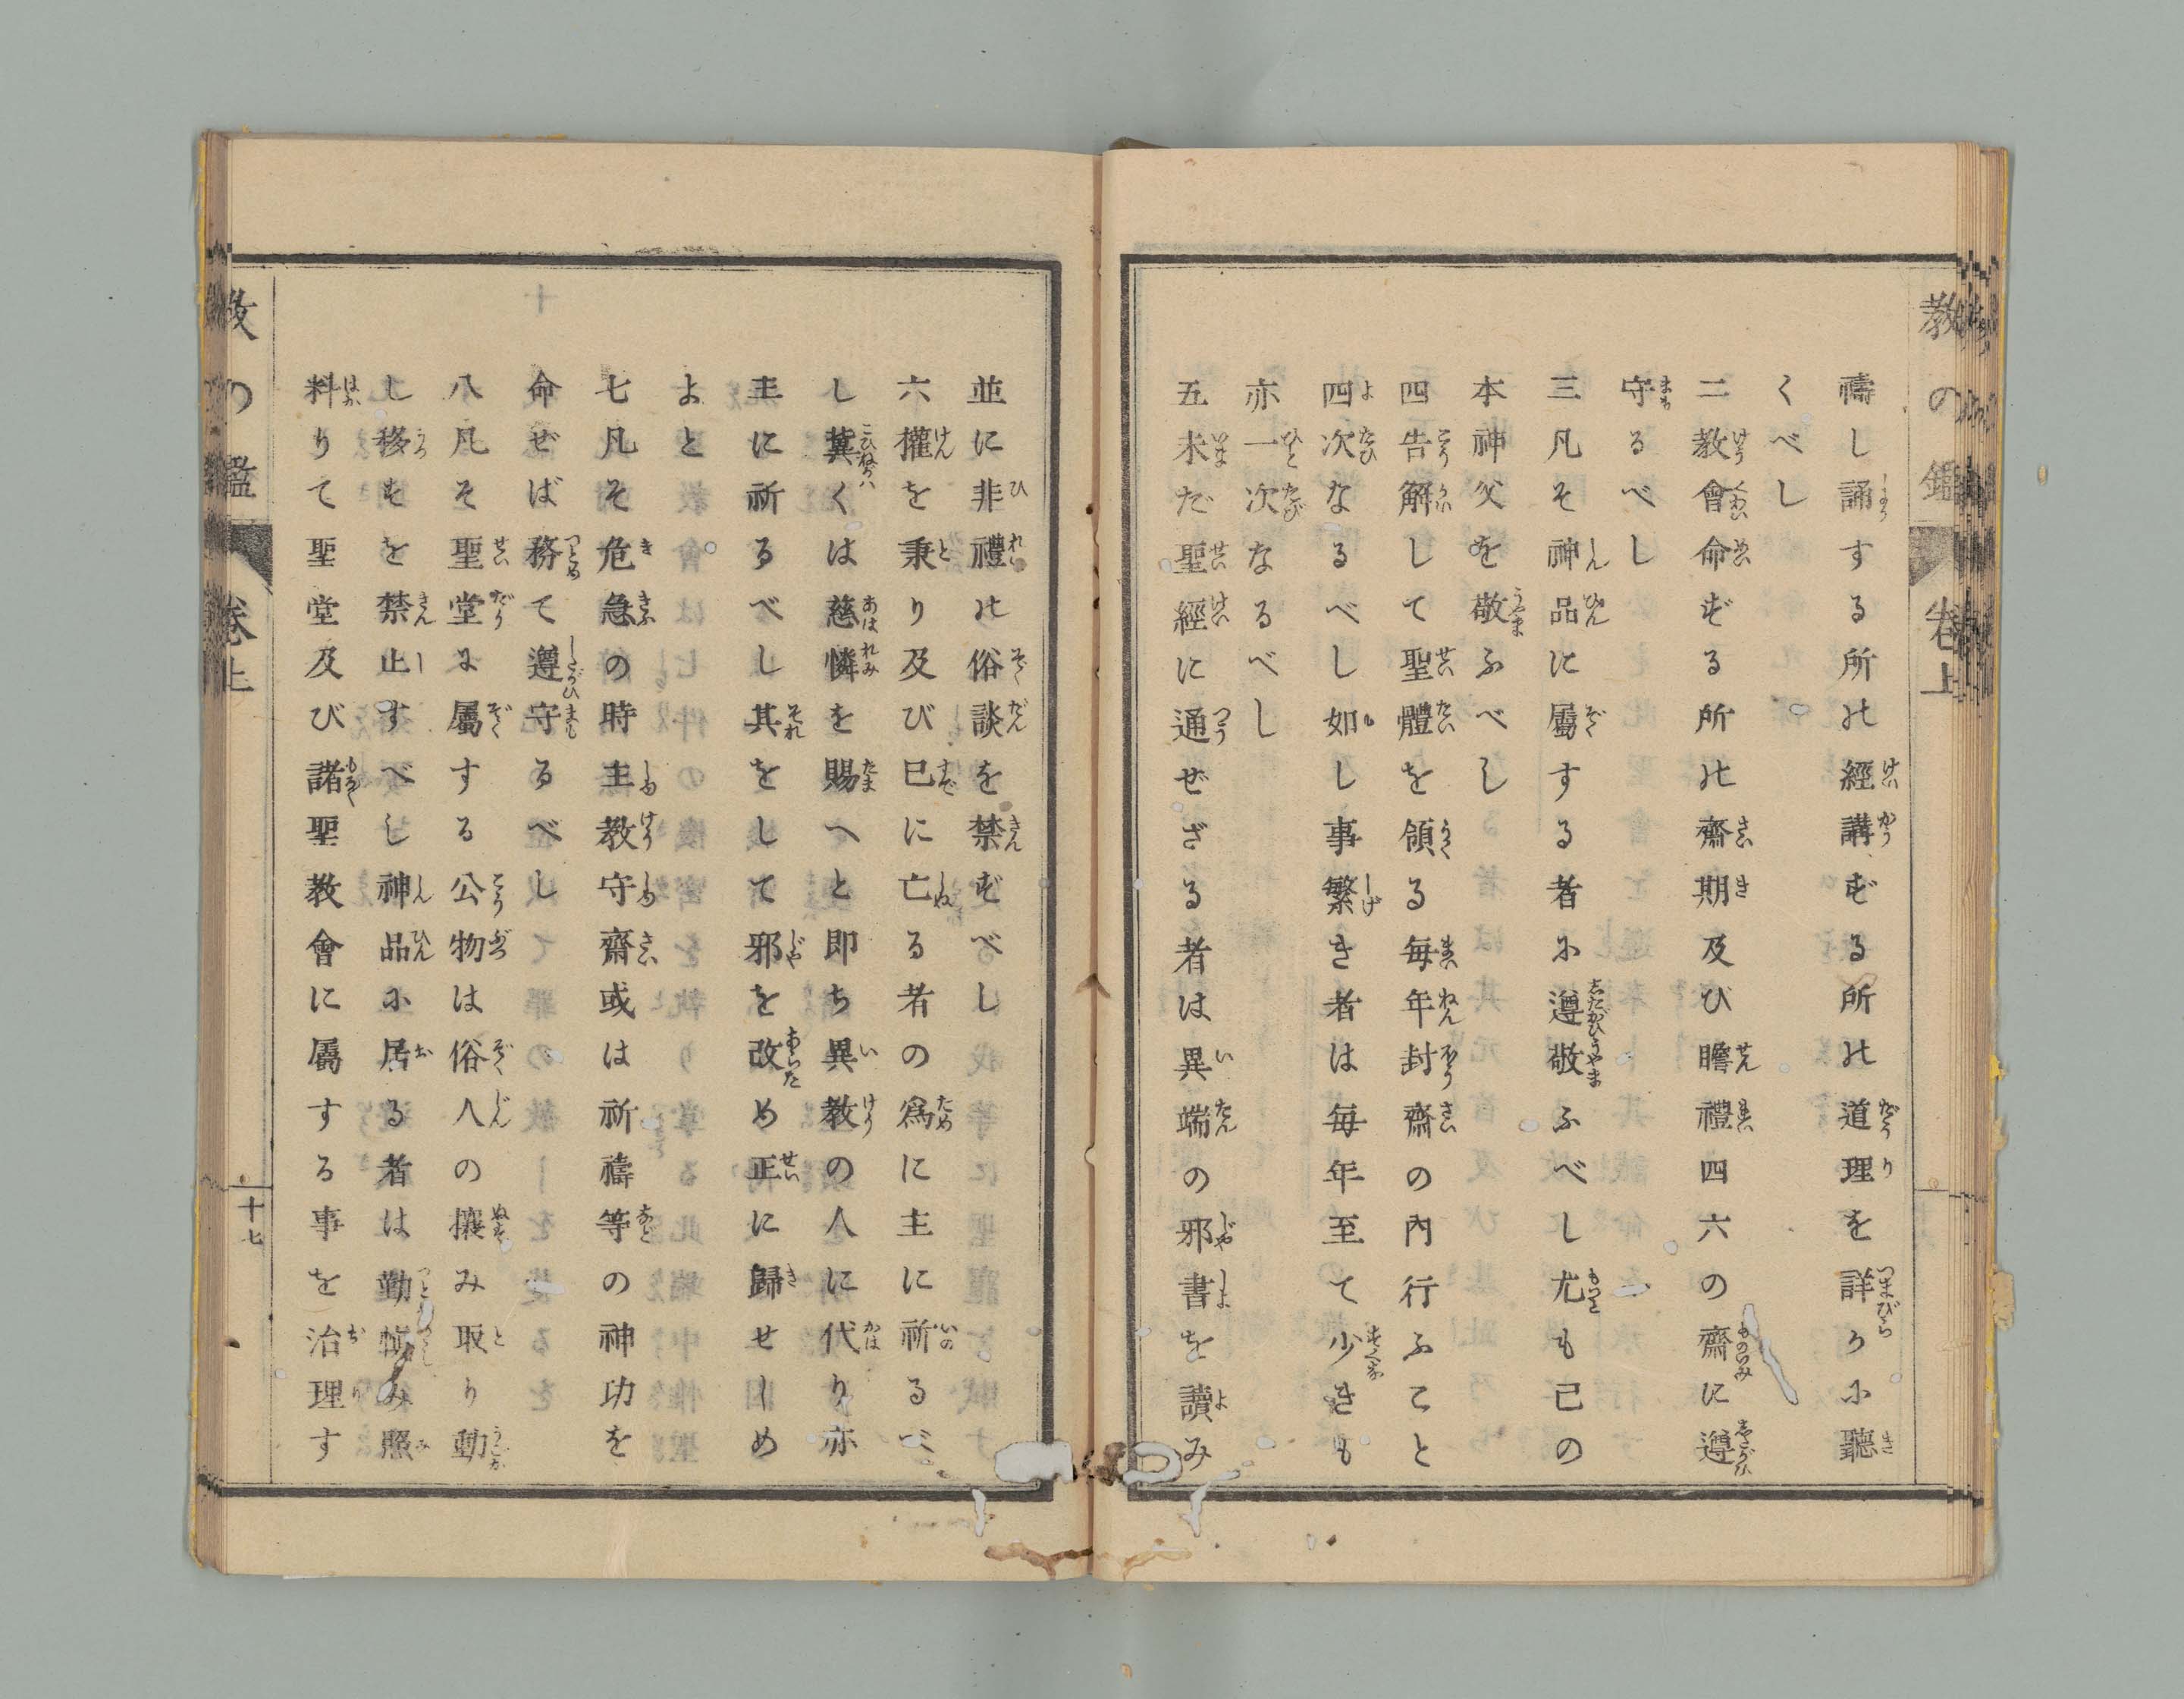 教の鑑 卷上
禱し誦する所の經講ずる所の道理を詳かに聽
くべし
二教會命ずる所の齋期及び瞻禮四六の齋に遵
守るべし
三凡そ神品に屬する者に遵敬ふべし尤も己の
本神父を敬ふべし
四告解して聖體を領る毎年封齋の內行ふこと
四次なるべし如し事繁き者は毎年至て少きも
亦一次なるべし
五未だ聖經に通ぜざる者は異端の邪書を讀み
並に非禮の俗談を禁ずべし
六權を秉り及び已に亡る者の爲に主に祈るべ
し冀くは慈憐を賜へと即ち異教の人に代り亦
主に祈るべし其をして邪を改め正に歸せしめ
よと
七凡そ危急の時主教守齋或は祈禱等の神功を
命ぜば務て遵守るべし
八凡そ聖堂に屬する公物は俗人の攘み取り動
し移すを禁止すべし神品に居る者は勤愼み照
料りて聖堂及び諸聖教會に屬する事を治理す
教の鑑 卷上 十七